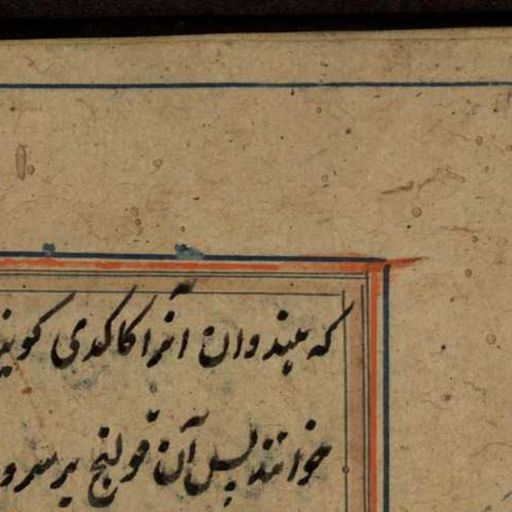 که هندوان آنرا کاکدی کویند
خوانند پس آن قولنج بر سر و